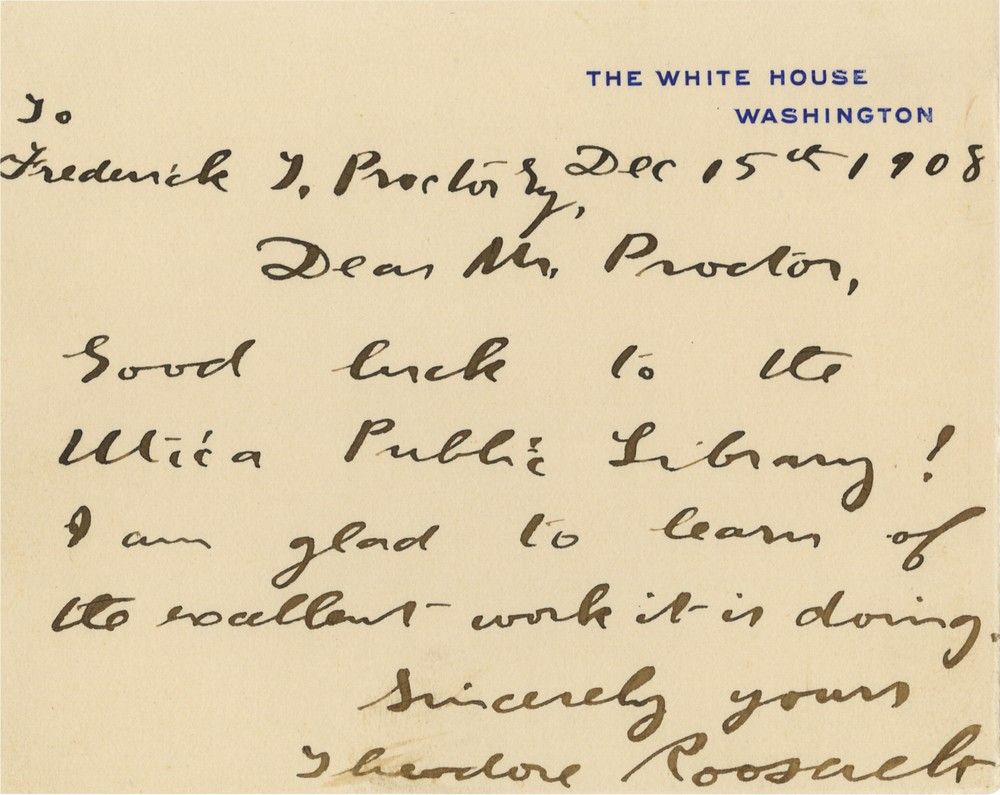 THE WHITE HOUSE
WASHINGTON
To
Frederick T. Proctor Esq, Dec 15th 1908
Dear Mr. Proctor,
Good luck to the
Utica Public Library!
I am glad to learn of
the excellent work it is doing.
Sincerely yours
Theodore Roosevelt